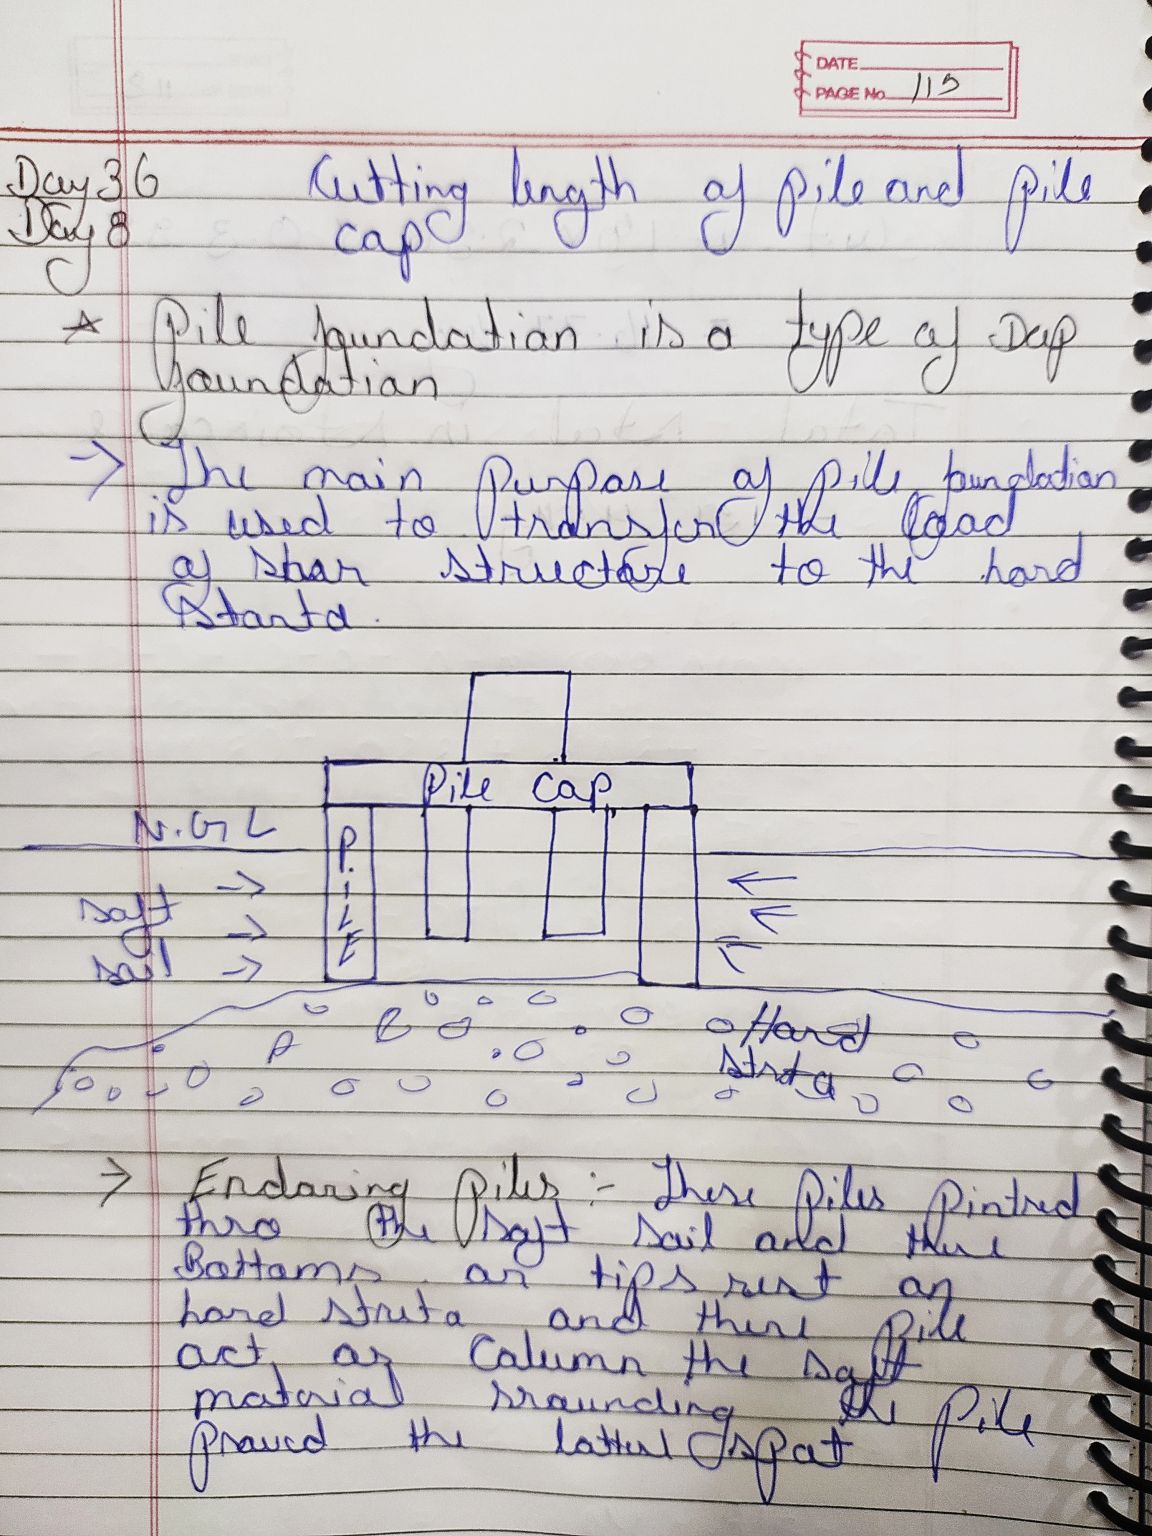 DATE
PAGE No. 115
Day 36 Cutting length of pile and pile
Day 8 cap
Pile foundation is a type of Dap
foundation
→ The main Purpose of pile foundation
is used to transfer the load
of structure to the hard
starta.
Pile Cap
N.G.L
PILE
soft
soil
Hard
strta
→ Endaring piles :- These piles pintred
thro the soft soil and there
Bottoms or tips rest on
hard streta and there pile
act as Column the soft
matarial srounding the pile
the